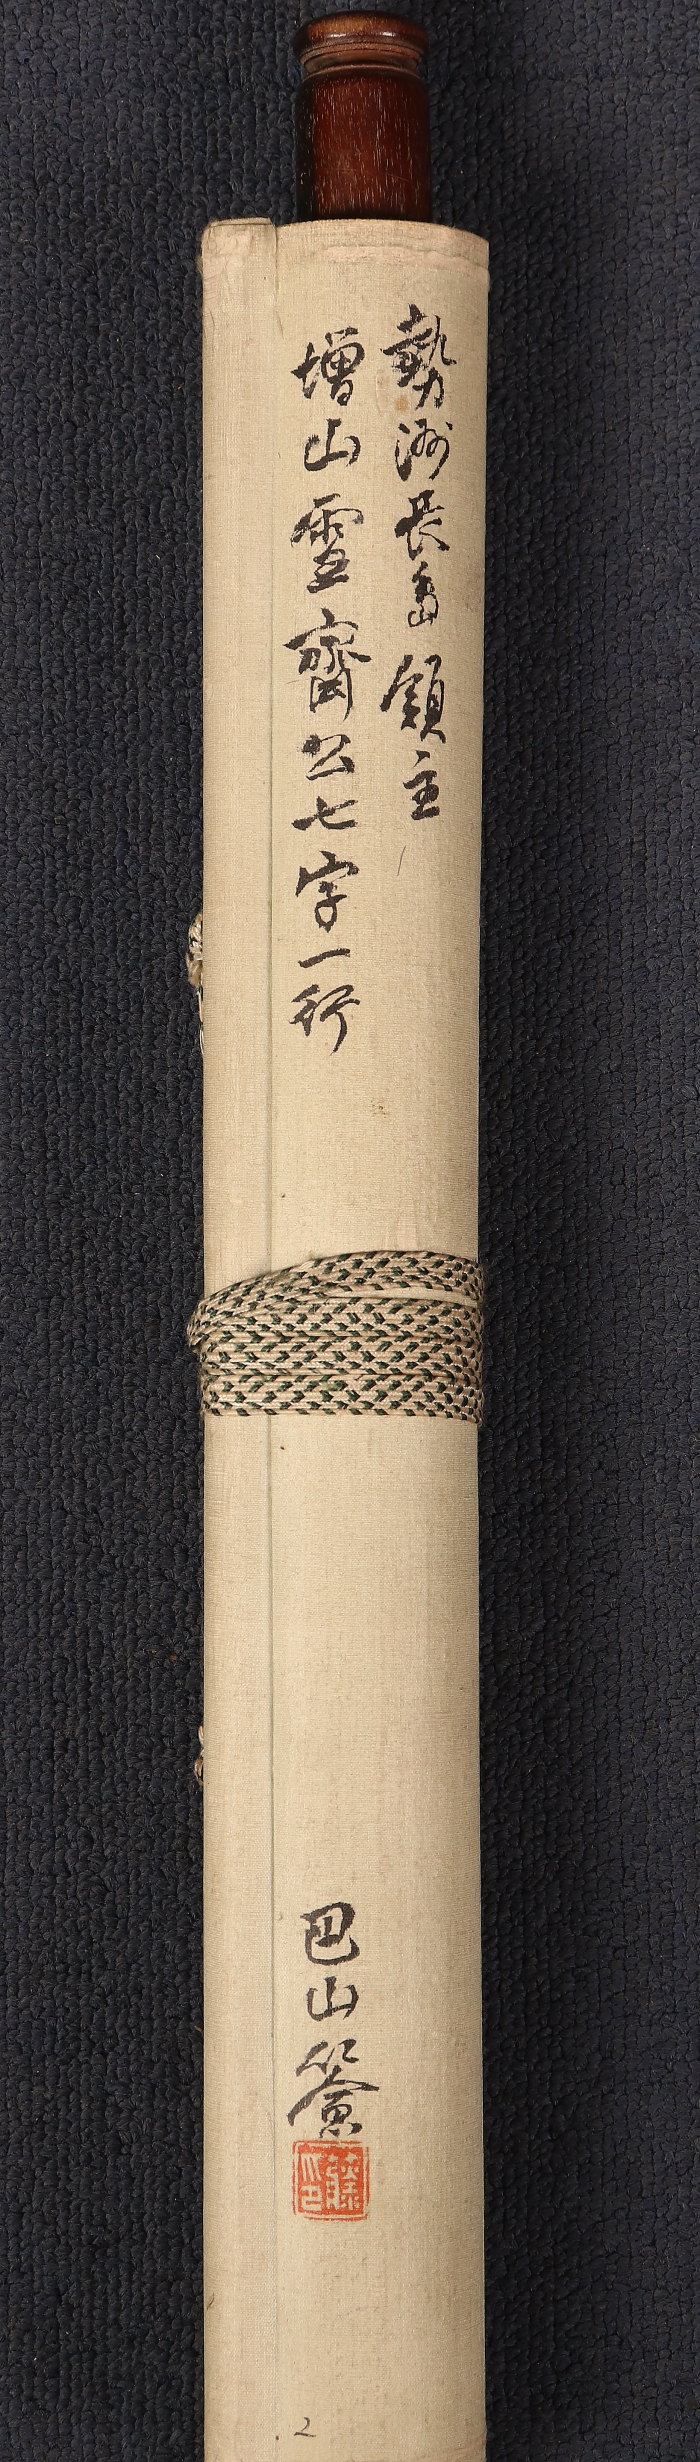 勢洲長島領主
増山雪齋公七字一行
巴山簽
2